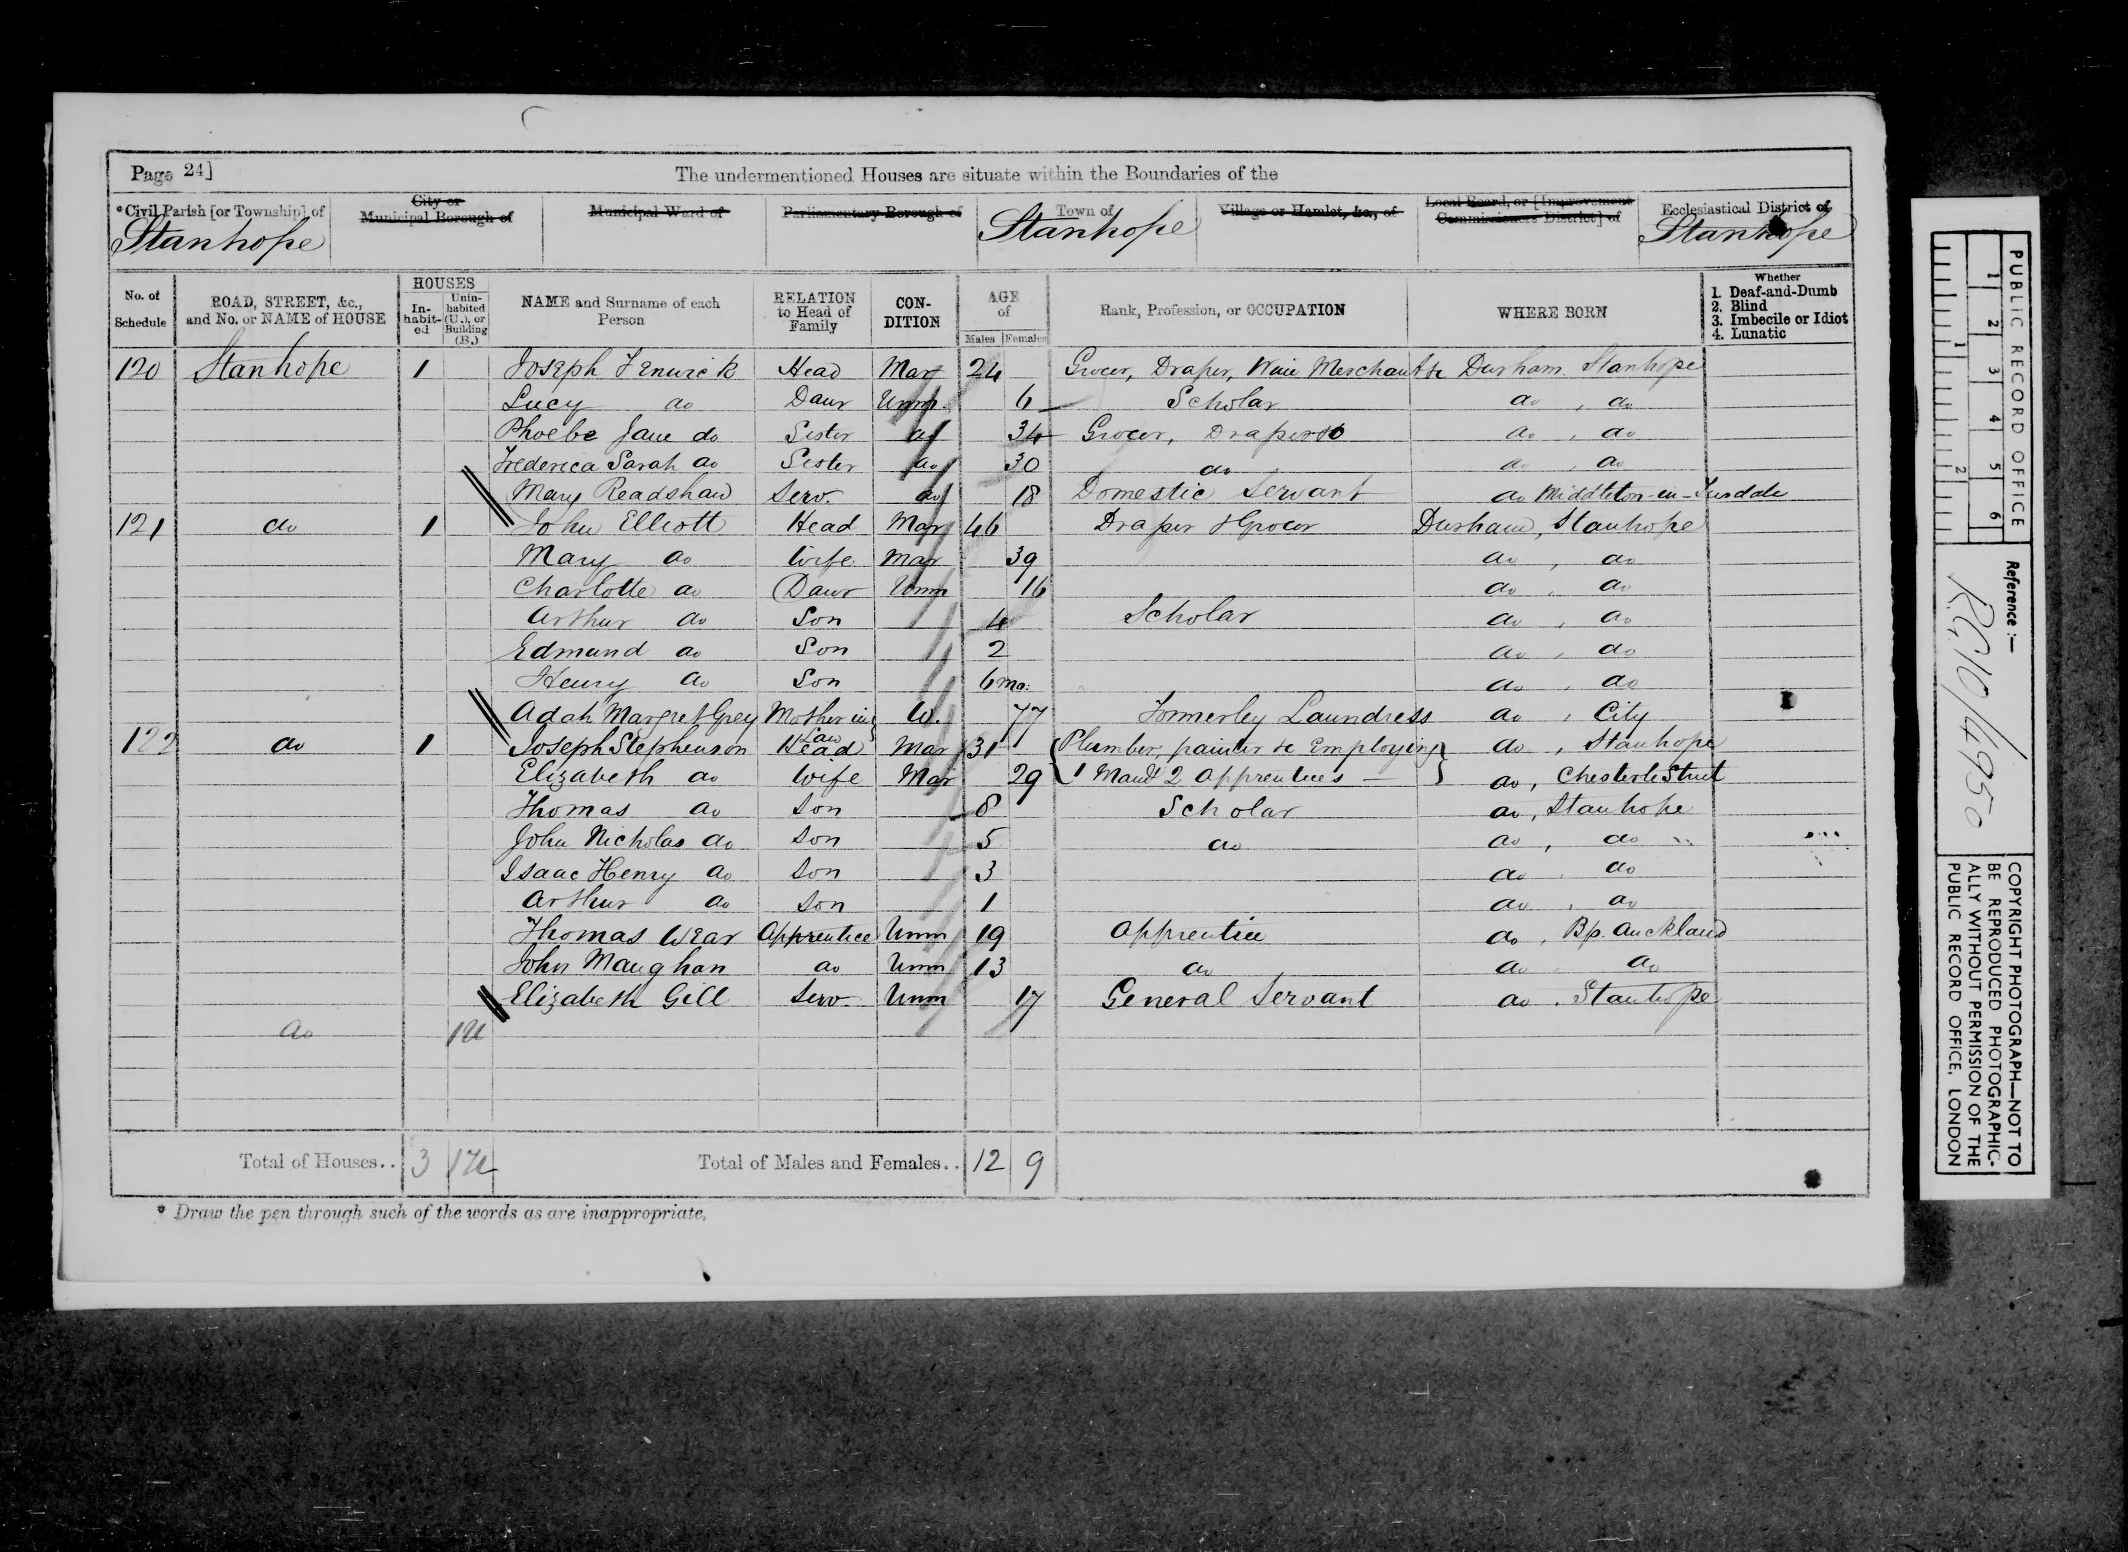 Page 24]
The undermentioned Houses are situate within the Boundaries of the
*Civil Parish [or Township] of
Stanhope
City or
Municipal Borough of
Municipal Ward of
Parliamentary Borough of
Town of
Stanhope
Village or Hamlet, &c., of
Local Board, or [Improvement
Commissioners District] of
Ecclesiastical District of
Stanhope
No. of
Schedule
ROAD, STREET, &c.,
and No. or NAME of HOUSE
HOUSES
In-
habit-
ed
Unin-
habited
(U.), or
Building
(B.)
NAME and Surname of each
Person
RELATION
to Head of
Family
CON-
DITION
AGE
of
Males Females
Rank, Profession, or OCCUPATION
WHERE BORN
Whether
1. Deaf-and-Dumb
2. Blind
3. Imbecile or Idiot
4. Lunatic
120 Stanhope 1 Joseph Fenwick Head Mar 24 Grocer, Draper, Wine Merchant &c Durham Stanhope
Lucy do Daur Unm 6 Scholar do, do
Phoebe Jane do Sister do 34 Grocer, Draper &c do, do
Frederica Sarah do Sister do 30 do do, do
Mary Readshaw Serv. do 18 Domestic Servant do Middleton-in-Teesdale
121 do 1 John Elliott Head Mar 46 Draper & Grocer Durham, Stanhope
Mary do Wife Mar 39 do, do
Charlotte do Daur Unm 16 do, do
Arthur do Son 4 Scholar do, do
Edmund do Son 2 do, do
Henry do Son 6 mo. do, do
Adah Margret Grey Mother in Law W. 77 Formerley Laundress do, City
122 do 1 Joseph Stephenson Head Mar 31 Plumber, painter &c Employing do, Stanhope
Elizabeth do Wife Mar 29 1 Man & 2 apprentices — do, Chester le Street
Thomas do Son 8 Scholar do, Stanhope
John Nicholas do Son 5 do do, do
Isaac Henry do Son 3 do, do
Arthur do Son 1 do, do
Thomas Wear Apprentice Unm 19 Apprentice do, Bp. Auckland
John Maughan do Unm 13 do do do
Elizabeth Gill Serv. Unm 17 General Servant do, Stanhope
do 1U
Total of Houses.. 3 1U Total of Males and Females.. 12 9
* Draw the pen through such of the words as are inappropriate.
PUBLIC RECORD OFFICE
1 2 3 4 5 6
1 2
Reference :—
R.G. 10/4950
COPYRIGHT PHOTOGRAPH—NOT TO
BE REPRODUCED PHOTOGRAPHIC-
ALLY WITHOUT PERMISSION OF THE
PUBLIC RECORD OFFICE, LONDON